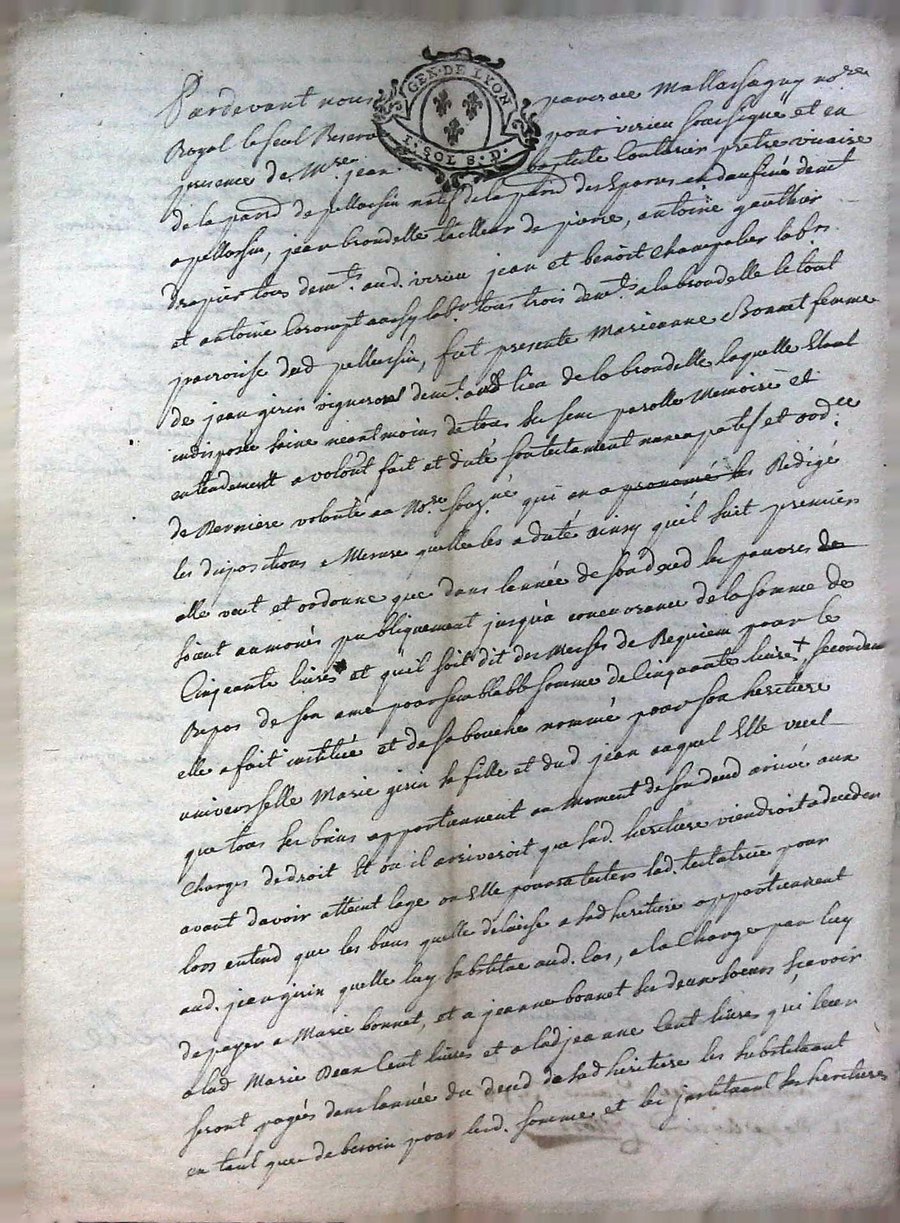 GEN. DE LYON
1. SOL 8. D.
Pardevant nous pancrace Mallassagny no.re
Royal le seul Reservé pour virieu soussigné et en
presence de M.re jean baptiste Couturier pretre vicaire
de la par.d de pellussin natif de la par.d des Eparres en daufiné dem.t
a pellussin, jean brondelle tailleur de pierre, antoine gauthier
drapier tous dem.ts aud. virieu jean et benoit Champalier lab.rs
et antoine Corompt aussy lab.r tous trois dem.ts a la brondelle le tout
parroisse dud pellussin, fut presente Marieanne Bonnet femme
de jean girin vigneron dem.t aud lieu de la brondelle laquelle Etant
indisposée saine neantmoins de tous ses sens parolle Memoire et
entendement a volont fait et dicté son testament nuncupatif et ord.ce
de Derniere volonté au No.re sousg.né qui en a Redigé
les dispositions a Mesure quelle les a dicté ainsy qu'il suit premierem
elle veut et ordonne que dans lannée de son deced les pauvres
soient aumonés publiquement jusqu'a concurrance de la somme de
Cinquante livres et quil soit dit des Messes de Requiem pour le
Repos de son ame pour semblable somme de Cinquante livres + secondem
elle a fait institué et de sa bouche nommée pour son heritiere
universelle Marie girin sa fille et dud jean auquel Elle veut
que tous ses biens appartiennent au moment de son deced arrivé aux
Charges de droit Et ou il arriveroit que lad. heritiere viendroit a deceder
avant davoir atteint lage ou Elle pourra tester lad. testatrice pour
lors entend que les biens quelle delaisse a sad heritiere appartiennent
aud. jean girin quelle luy substitue aud. Cas, a la Charge par luy
de payer a Marie bonnet, et a jeanne bonnet ses deux soeurs Sçavoir
a lad Marie Deux Cent livres et a lad jeanne Cent livres qui leur
seront payés dans lannée du deced de sad heritiere les substituant
en tant que de besoin pour lesd. somme et les instituant ses heritieres